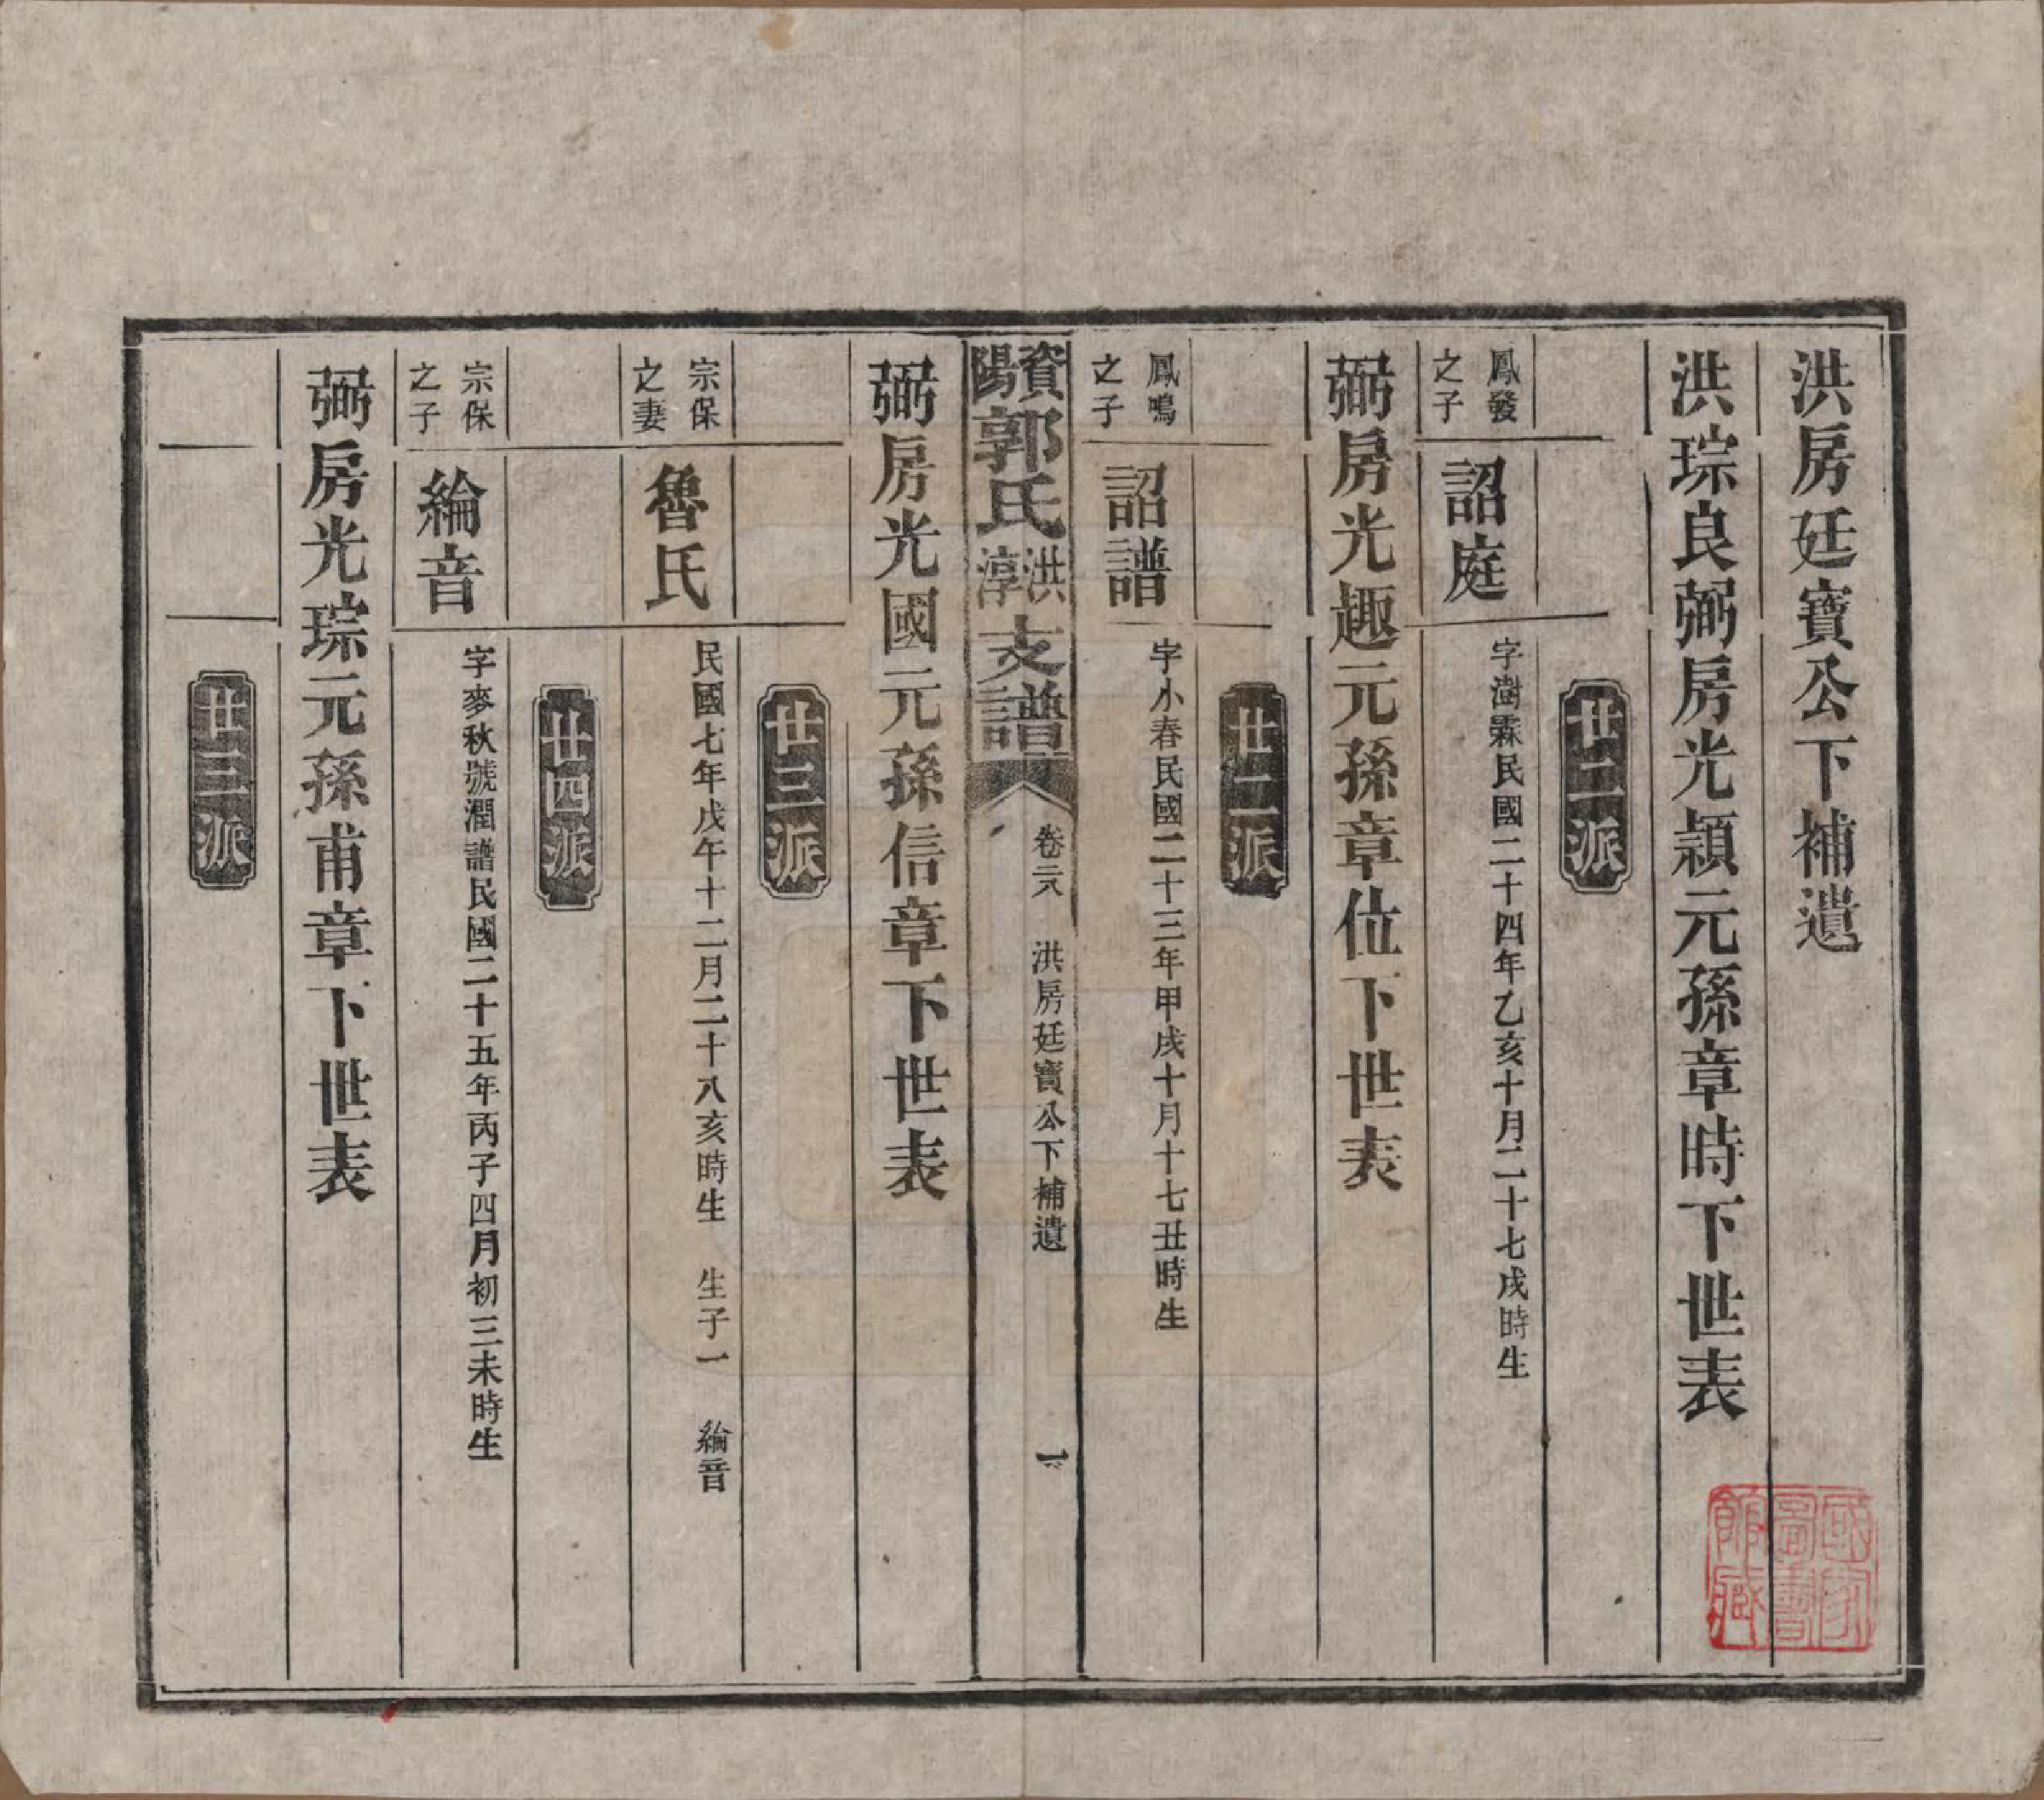 洪房廷寶公下補遺
洪琮良弼房光穎元孫章時下世表
廿二派
鳳發之子
詔庭
字澍霖民國二十四年乙亥十月二十七戌時生
弼房光趣元孫章位下世表
廿二派
鳳鳴之子
詔譜
字小春民國二十三年甲戌十月十七丑時生
資陽郭氏洪淳支譜
卷二八
洪房廷寶公下補遺
一
弼房光國元孫信章下世表
廿三派
宗保之妻
魯氏
民國七年戊午十二月二十八亥時生 生子一 綸音
廿四派
宗保之子
綸音
字麥秋號潤譜民國二十五年丙子四月初三未時生
弼房光琮元孫甫章下世表
廿三派
國家圖書館藏